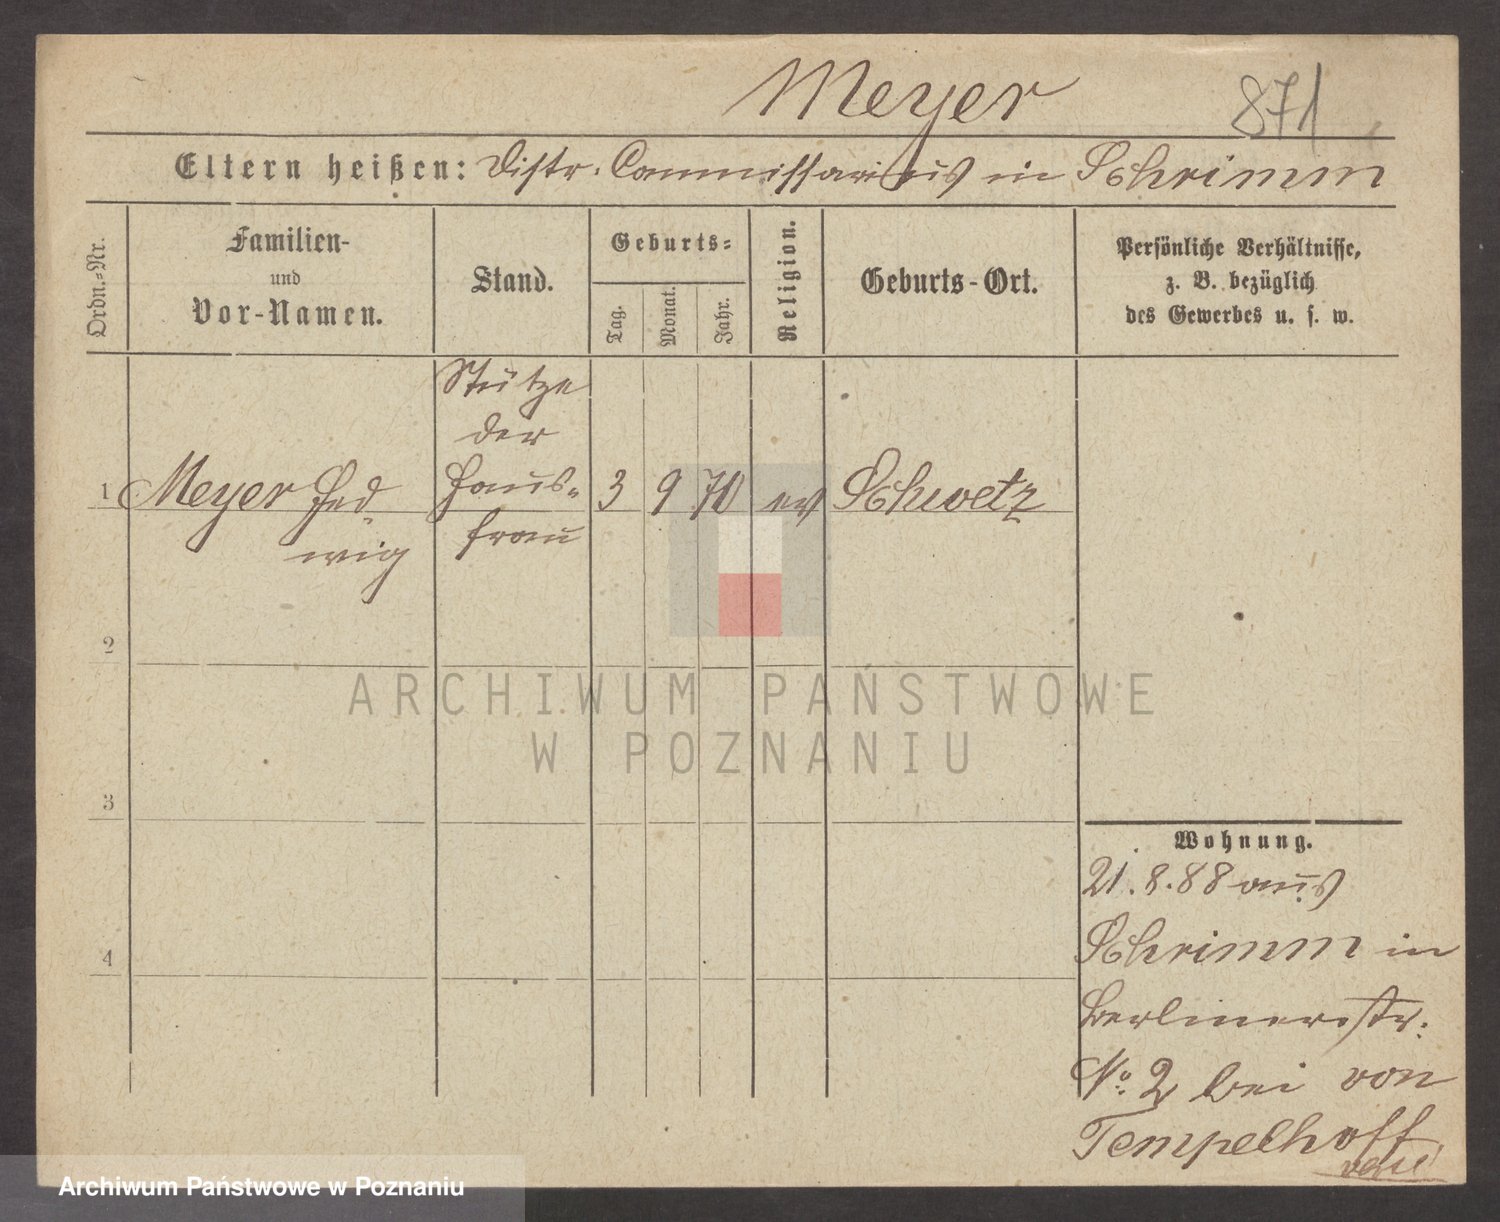 Meyer
871
Eltern heißen: Distr. Commissarius in Schrimm
Ordn.-Nr.
Familien-
und
Vor-Namen.
Stand.
Geburts-
Tag.
Monat.
Jahr.
Religion.
Geburts-Ort.
Persönliche Verhältnisse,
z. B. bezüglich
des Gewerbes u. s. w.
Stütze
der
Haus-
frau
1 Meyer Hed-
wig
3 9 70 ev Schwetz
2
3
4
ARCHIWUM PAŃSTWOWE
W POZNANIU
Wohnung.
21.8.88 aus
Schrimm in
Berlinerstr.
No. 2 bei von
Tempelhoff
Archiwum Państwowe w Poznaniu